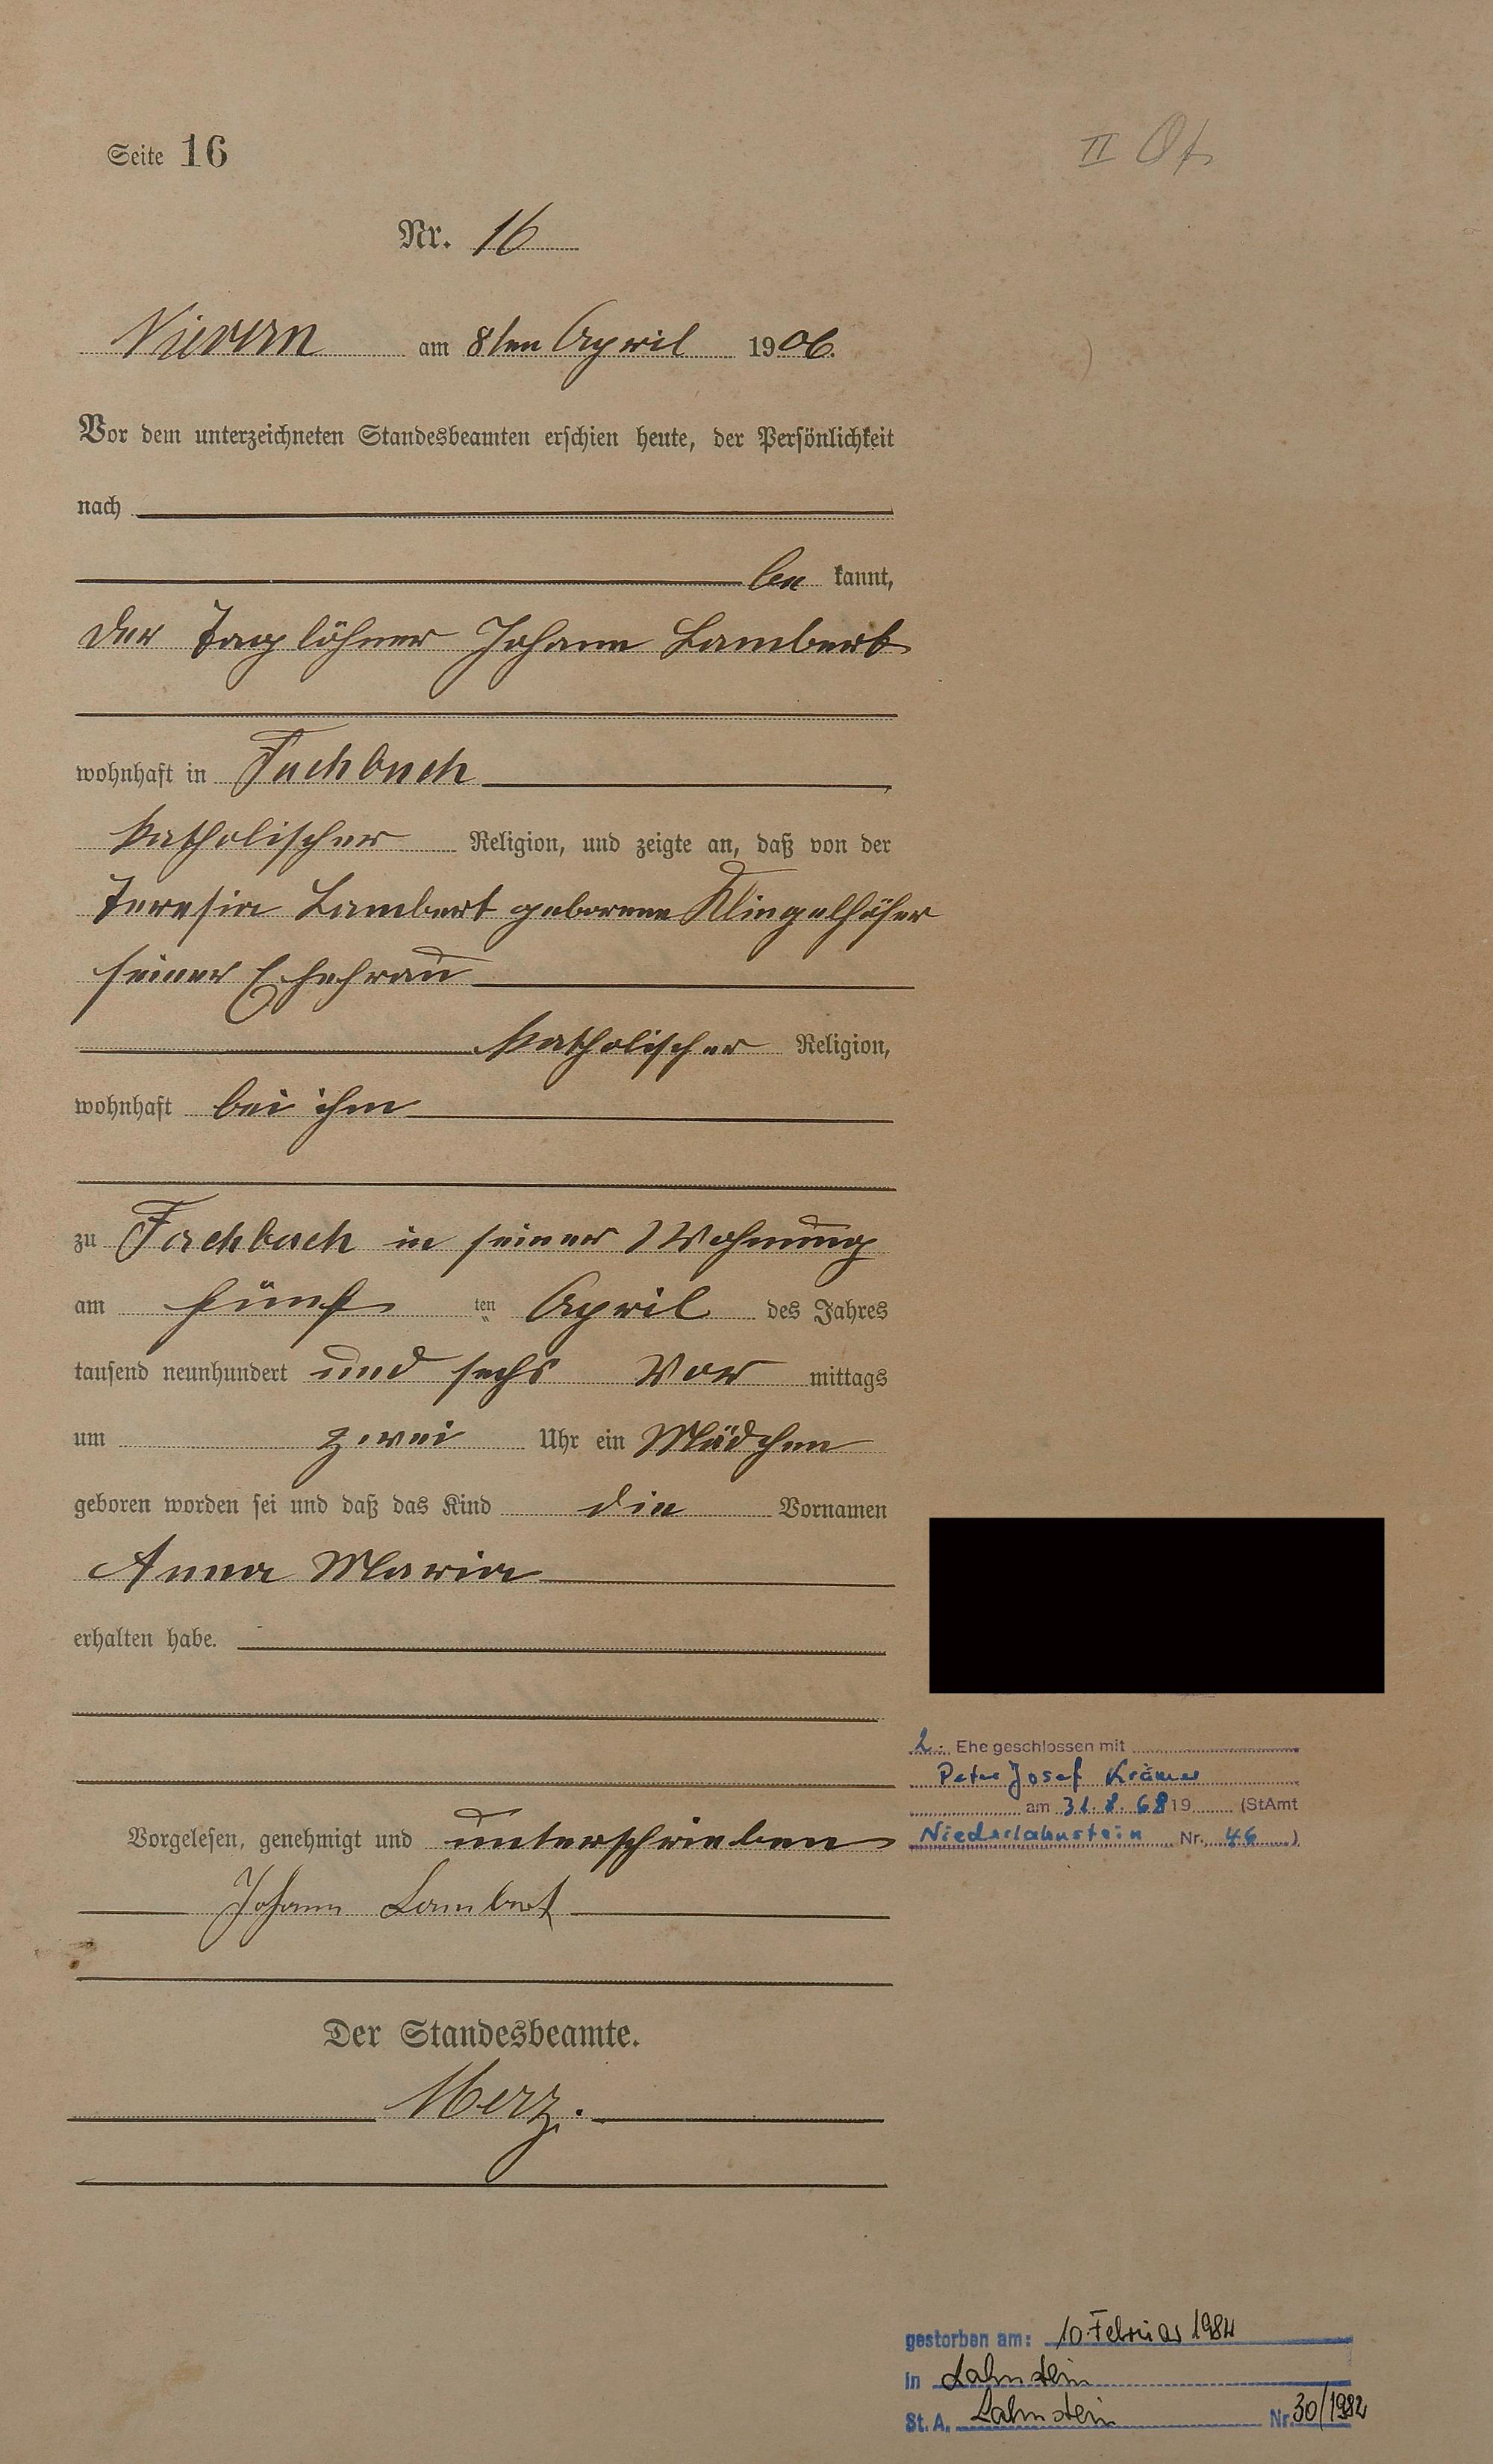 Seite 16
II
Nr. 16
Nievern am 8ten April 1906.
Vor dem unterzeichneten Standesbeamten erschien heute, der Persönlichkeit
nach
be kannt,
der Taglöhner Johann Lambert
wohnhaft in Fachbach
katholischer Religion, und zeigte an, daß von der
Teresia Lambert geborene Klingelhöfer
seiner Ehefrau
katholischer Religion,
wohnhaft bei ihm
zu Fachbach in seiner Wohnung
am fünf ten April des Jahres
tausend neunhundert und sechs Vor mittags
um zwei Uhr ein Mädchen
geboren worden sei und daß das Kind die Vornamen
Anna Maria
erhalten habe.
2. Ehe geschlossen mit
Peter Josef Krämer
am 31. 8. 68 19 (StAmt
Niederlahnstein Nr. 46 )
Vorgelesen, genehmigt und unterschrieben
Johann Lambert
Der Standesbeamte.
Merz.
gestorben am: 10. Februar
in Lahnstein
St. A. Lahnstein Nr. 30/1982